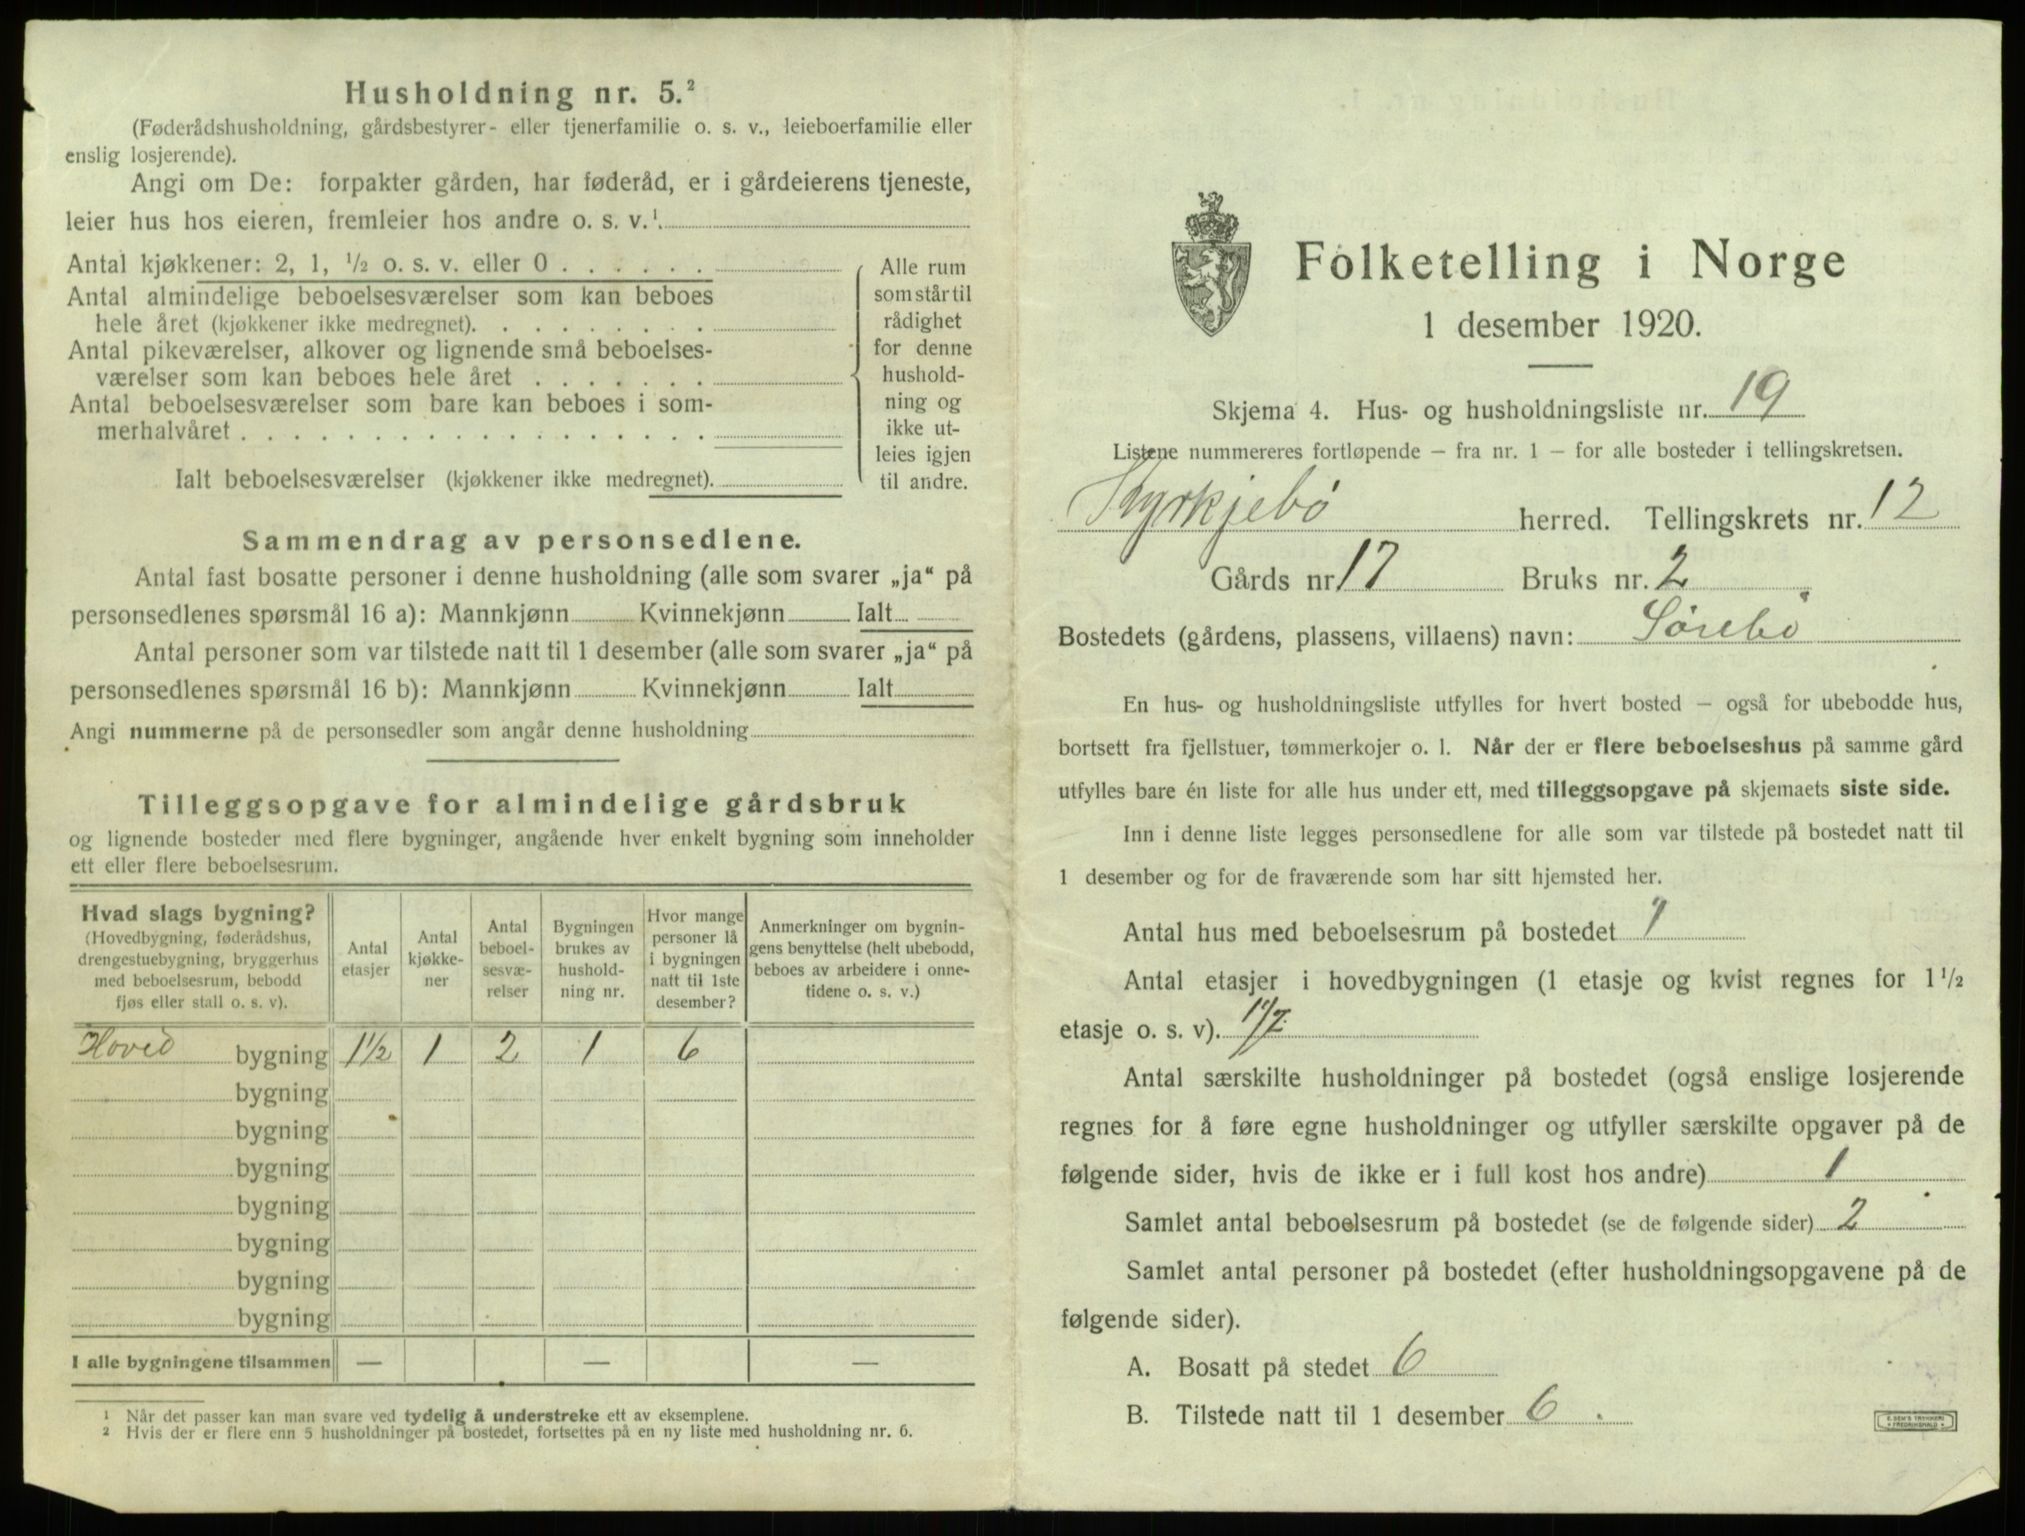 Husholdning nr. 5.²
(Føderådshusholdning, gårdsbestyrer- eller tjenerfamilie o. s. v., leieboerfamilie eller
enslig losjerende).
Angi om De: forpakter gården, har føderåd, er i gårdeierens tjeneste,
leier hus hos eieren, fremleier hos andre o. s. v.¹
Antal kjøkkener: 2, 1, ½ o. s. v. eller 0 . . . . . .
Antal almindelige beboelsesværelser som kan beboes
hele året (kjøkkener ikke medregnet). . . . . . . . . .
Antal pikeværelser, alkover og lignende små beboelses-
værelser som kan beboes hele året . . . . . . .
Antal beboelsesværelser som bare kan beboes i som-
merhalvåret . . . . . . . . . . . . . . . . . .
Ialt beboelsesværelser (kjøkkener ikke medregnet).
Alle rum
som står til
rådighet
for denne
hushold-
ning og
ikke ut-
leies igjen
til andre.
Sammendrag av personsedlene.
Antal fast bosatte personer i denne husholdning (alle som svarer „ja“ på
personsedlenes spørsmål 16 a): Mannkjønn Kvinnekjønn Ialt
Antal personer som var tilstede natt til 1 desember (alle som svarer „ja“ på
personsedlenes spørsmål 16 b): Mannkjønn Kvinnekjønn Ialt
Angi nummerne på de personsedler som angår denne husholdning
Tilleggsopgave for almindelige gårdsbruk
og lignende bosteder med flere bygninger, angående hver enkelt bygning som inneholder
ett eller flere beboelsesrum.
Hvad slags bygning?
(Hovedbygning, føderådshus,
drengestuebygning, bryggerhus
med beboelsesrum, bebodd
fjøs eller stall o. s. v).
Antal
etasjer
Antal
kjøkke-
ner
Antal
beboel-
sesvæ-
relser
Bygningen
brukes av
hushold-
ning nr.
Hvor mange
personer lå
i bygningen
natt til 1ste
desember?
Anmerkninger om bygnin-
gens benyttelse (helt ubebodd,
beboes av arbeidere i onne-
tidene o. s. v.)
Hoved bygning 1½ 1 2 1 6
bygning
bygning
bygning
bygning
bygning
bygning
bygning
I alle bygningene tilsammen — — —
¹ Når det passer kan man svare ved tydelig å understreke ett av eksemplene.
² Hvis der er flere enn 5 husholdninger på bostedet, fortsettes på en ny liste med husholdning nr. 6.
Folketelling i Norge
1 desember 1920.
Skjema 4. Hus- og husholdningsliste nr. 19
Listene nummereres fortløpende — fra nr. 1 — for alle bosteder i tellingskretsen.
Kyrkjebø herred. Tellingskrets nr. 12
Gårds nr. 17 Bruks nr. 2
Bostedets (gårdens, plassens, villaens) navn: Sørebø
En hus- og husholdningsliste utfylles for hvert bosted — også for ubebodde hus,
bortsett fra fjellstuer, tømmerkojer o. l. Når der er flere beboelseshus på samme gård
utfylles bare én liste for alle hus under ett, med tilleggsopgave på skjemaets siste side.
Inn i denne liste legges personsedlene for alle som var tilstede på bostedet natt til
1 desember og for de fraværende som har sitt hjemsted her.
Antal hus med beboelsesrum på bostedet 1
Antal etasjer i hovedbygningen (1 etasje og kvist regnes for 1½
etasje o. s. v). 1½
Antal særskilte husholdninger på bostedet (også enslige losjerende
regnes for å føre egne husholdninger og utfyller særskilte opgaver på de
følgende sider, hvis de ikke er i full kost hos andre) 1
Samlet antal beboelsesrum på bostedet (se de følgende sider) 2
Samlet antal personer på bostedet (efter husholdningsopgavene på de
følgende sider).
A. Bosatt på stedet 6
B. Tilstede natt til 1 desember 6
E. SEM'S TRYKKERI
FREDRIKSHALD